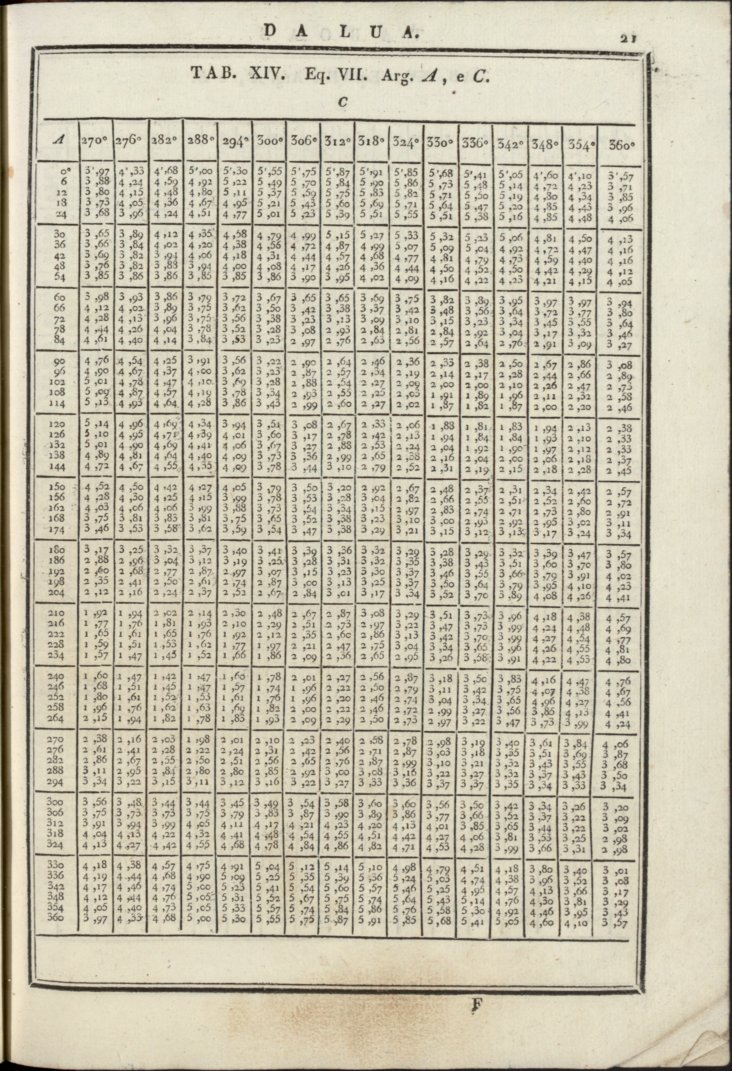 DA LUA. 21
TAB. XIV. Eq. VII. Arg. A, e C.
C
A 270° 276° 282° 288° 294° 300° 306° 312° 318° 324° 330° 336° 342° 348° 354° 360°
0° 3',97 4',33 4',68 5',00 5',30 5',55 5',75 5',87 5',91 5',85 5',68 5',41 5',05 4',60 4',10 3',57
6 3,88 4,24 4,59 4,92 5,22 5,49 5,70 5,84 5,90 5,86 5,73 5,48 5,14 4,72 4,23 3,71
12 3,80 4,15 4,48 4,80 5,11 5,37 5,59 5,75 5,83 5,82 5,71 5,50 5,19 4,80 4,34 3,85
18 3,73 4,05 4,36 4,67 4,95 5,21 5,43 5,60 5,69 5,71 5,64 5,47 5,20 4,85 4,43 3,96
24 3,68 3,96 4,24 4,51 4,77 5,01 5,23 5,39 5,51 5,55 5,51 5,38 5,16 4,85 4,48 4,06
30 3,65 3,89 4,12 4,35 4,58 4,79 4,99 5,15 5,27 5,33 5,32 5,23 5,06 4,81 4,50 4,13
36 3,66 3,84 4,02 4,20 4,38 4,56 4,72 4,87 4,99 5,07 5,09 5,04 4,92 4,72 4,47 4,16
42 3,69 3,82 3,94 4,06 4,18 4,31 4,44 4,57 4,68 4,77 4,81 4,79 4,73 4,59 4,40 4,16
48 3,76 3,82 3,88 3,94 4,00 4,08 4,17 4,26 4,36 4,44 4,50 4,52 4,50 4,42 4,29 4,12
54 3,85 3,86 3,86 3,85 3,85 3,86 3,90 3,95 4,02 4,09 4,16 4,22 4,23 4,21 4,15 4,05
60 3,98 3,93 3,86 3,79 3,72 3,67 3,65 3,65 3,69 3,75 3,82 3,89 3,95 3,97 3,97 3,94
66 4,12 4,02 3,89 3,75 3,62 3,50 3,42 3,38 3,37 3,42 3,48 3,56 3,64 3,72 3,77 3,80
72 4,28 4,13 3,96 3,75 3,56 3,38 3,23 3,13 3,09 3,10 3,15 3,23 3,34 3,45 3,55 3,64
78 4,44 4,26 4,04 3,78 3,52 3,28 3,08 2,93 2,84 2,81 2,84 2,92 3,04 3,17 3,32 3,46
84 4,61 4,40 4,14 3,84 3,53 3,23 2,97 2,76 2,63 2,56 2,57 2,64 2,76 2,91 3,09 3,27
90 4,76 4,54 4,25 3,91 3,56 3,22 2,90 2,64 2,46 2,36 2,33 2,38 2,50 2,67 2,86 3,08
96 4,90 4,67 4,37 4,00 3,62 3,23 2,87 2,57 2,34 2,19 2,14 2,17 2,28 2,44 2,66 2,89
102 5,01 4,78 4,47 4,10 3,69 3,28 2,88 2,54 2,27 2,09 2,00 2,00 2,10 2,26 2,47 2,73
108 5,09 4,87 4,57 4,19 3,78 3,34 2,93 2,55 2,25 2,03 1,91 1,89 1,96 2,11 2,32 2,58
114 5,13 4,93 4,64 4,28 3,86 3,43 2,99 2,60 2,27 2,02 1,87 1,82 1,87 2,00 2,20 2,46
120 5,14 4,96 4,69 4,34 3,94 3,51 3,08 2,67 2,33 2,06 1,88 1,81 1,83 1,94 2,13 2,38
126 5,10 4,95 4,71 4,39 4,01 3,60 3,17 2,78 2,42 2,13 1,94 1,84 1,84 1,93 2,10 2,33
132 5,01 4,90 4,69 4,41 4,06 3,67 3,27 2,88 2,53 2,24 2,04 1,92 1,90 1,97 2,12 2,33
138 4,89 4,81 4,64 4,40 4,09 3,73 3,36 2,99 2,65 2,38 2,16 2,04 2,00 2,06 2,18 2,37
144 4,72 4,67 4,55 4,35 4,09 3,78 3,44 3,10 2,79 2,52 2,31 2,19 2,15 2,18 2,28 2,45
150 4,52 4,50 4,42 4,27 4,05 3,79 3,50 3,20 2,92 2,67 2,48 2,37 2,31 2,34 2,42 2,57
156 4,28 4,30 4,25 4,15 3,99 3,78 3,53 3,28 3,04 2,82 2,66 2,55 2,51 2,52 2,60 2,72
162 4,03 4,06 4,06 3,99 3,88 3,73 3,54 3,34 3,15 2,97 2,83 2,74 2,71 2,73 2,80 2,91
168 3,75 3,81 3,83 3,81 3,75 3,65 3,52 3,38 3,23 3,10 3,00 2,93 2,92 2,95 3,02 3,11
174 3,46 3,53 3,58 3,62 3,59 3,54 3,47 3,38 3,29 3,21 3,15 3,12 3,13 3,17 3,24 3,34
180 3,17 3,25 3,32 3,37 3,40 3,41 3,39 3,36 3,32 3,29 3,28 3,29 3,32 3,39 3,47 3,57
186 2,88 2,96 3,04 3,13 3,19 3,25 3,28 3,31 3,32 3,35 3,38 3,43 3,51 3,60 3,70 3,80
192 2,60 2,68 2,77 2,87 2,97 3,07 3,15 3,23 3,30 3,37 3,46 3,55 3,66 3,79 3,91 4,02
198 2,35 2,41 2,50 2,61 2,74 2,87 3,00 3,13 3,25 3,37 3,50 3,64 3,79 3,95 4,10 4,23
204 2,12 2,16 2,24 2,37 2,52 2,67 2,84 3,01 3,17 3,34 3,52 3,70 3,89 4,08 4,26 4,41
210 1,92 1,94 2,02 2,14 2,30 2,48 2,67 2,87 3,08 3,29 3,51 3,73 3,96 4,18 4,38 4,57
216 1,77 1,76 1,81 1,93 2,10 2,29 2,51 2,73 2,97 3,22 3,47 3,73 3,99 4,24 4,48 4,69
222 1,65 1,61 1,65 1,76 1,92 2,12 2,35 2,60 2,86 3,13 3,42 3,70 3,99 4,27 4,54 4,77
228 1,59 1,51 1,53 1,62 1,77 1,97 2,21 2,47 2,75 3,04 3,34 3,65 3,96 4,26 4,55 4,81
234 1,57 1,47 1,45 1,52 1,66 1,86 2,09 2,36 2,65 2,95 3,26 3,58 3,91 4,22 4,53 4,80
240 1,60 1,47 1,42 1,47 1,60 1,78 2,01 2,27 2,56 2,87 3,18 3,50 3,83 4,16 4,47 4,76
246 1,68 1,51 1,45 1,47 1,57 1,74 1,96 2,22 2,50 2,79 3,11 3,42 3,75 4,07 4,38 4,67
252 1,80 1,61 1,52 1,53 1,61 1,76 1,96 2,20 2,46 2,74 3,04 3,34 3,65 3,96 4,27 4,56
258 1,96 1,76 1,62 1,63 1,69 1,82 2,00 2,22 2,46 2,72 2,99 3,27 3,56 3,85 4,13 4,41
264 2,15 1,94 1,82 1,78 1,83 1,93 2,09 2,29 2,50 2,73 2,97 3,22 3,47 3,73 3,99 4,24
270 2,38 2,16 2,03 1,98 2,01 2,10 2,23 2,40 2,58 2,78 2,98 3,19 3,40 3,61 3,84 4,06
276 2,61 2,41 2,28 2,22 2,24 2,31 2,42 2,56 2,71 2,87 3,03 3,18 3,35 3,51 3,69 3,87
282 2,86 2,67 2,55 2,50 2,51 2,56 2,65 2,76 2,87 2,99 3,10 3,21 3,32 3,43 3,55 3,68
288 3,11 2,95 2,84 2,80 2,80 2,85 2,92 3,00 3,08 3,16 3,22 3,27 3,32 3,37 3,43 3,50
294 3,34 3,22 3,15 3,11 3,12 3,16 3,22 3,27 3,33 3,36 3,37 3,37 3,35 3,34 3,33 3,34
300 3,56 3,48 3,44 3,44 3,45 3,49 3,54 3,58 3,60 3,60 3,56 3,50 3,42 3,34 3,26 3,20
306 3,75 3,73 3,73 3,75 3,79 3,83 3,87 3,90 3,89 3,86 3,77 3,66 3,52 3,37 3,22 3,09
312 3,91 3,94 3,99 4,05 4,11 4,17 4,21 4,23 4,20 4,13 4,01 3,85 3,65 3,44 3,22 3,02
318 4,04 4,13 4,22 4,32 4,41 4,48 4,54 4,55 4,51 4,42 4,27 4,06 3,81 3,53 3,25 2,98
324 4,13 4,27 4,42 4,55 4,68 4,78 4,84 4,86 4,82 4,71 4,53 4,28 3,99 3,66 3,31 2,98
330 4,18 4,38 4,57 4,75 4,91 5,04 5,12 5,14 5,10 4,98 4,79 4,51 4,18 3,80 3,40 3,01
336 4,19 4,44 4,68 4,90 5,09 5,25 5,35 5,39 5,36 5,24 5,03 4,74 4,38 3,96 3,52 3,08
342 4,17 4,46 4,74 5,00 5,23 5,41 5,54 5,60 5,57 5,46 5,25 4,95 4,57 4,13 3,66 3,17
348 4,12 4,44 4,76 5,05 5,31 5,52 5,67 5,75 5,74 5,64 5,43 5,14 4,76 4,30 3,81 3,29
354 4,05 4,40 4,73 5,05 5,33 5,57 5,74 5,84 5,86 5,76 5,58 5,30 4,92 4,46 3,95 3,43
360 3,97 4,33 4,68 5,00 5,30 5,55 5,75 5,87 5,91 5,85 5,68 5,41 5,05 4,60 4,10 3,57
F